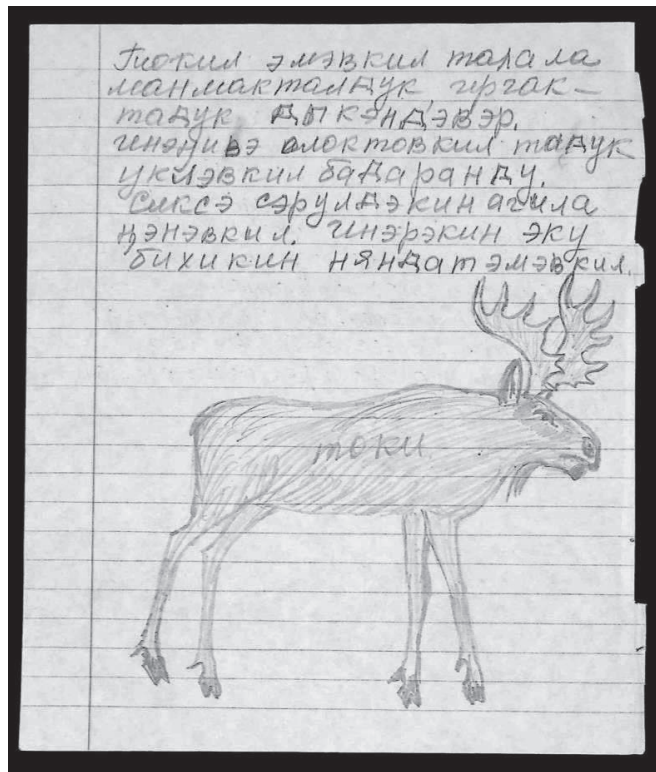 Токил эмэвкил тарала
манмакталдук иргак-
тадук дыкэндэвэр.
инэнивэ олоктовкил тадук
уклэвкил бадаранду.
Сиксэ сэрулдэкин агила
ңэнэвкил. Инэрэкин эку
бихикин няндат эмэвкил.
токи